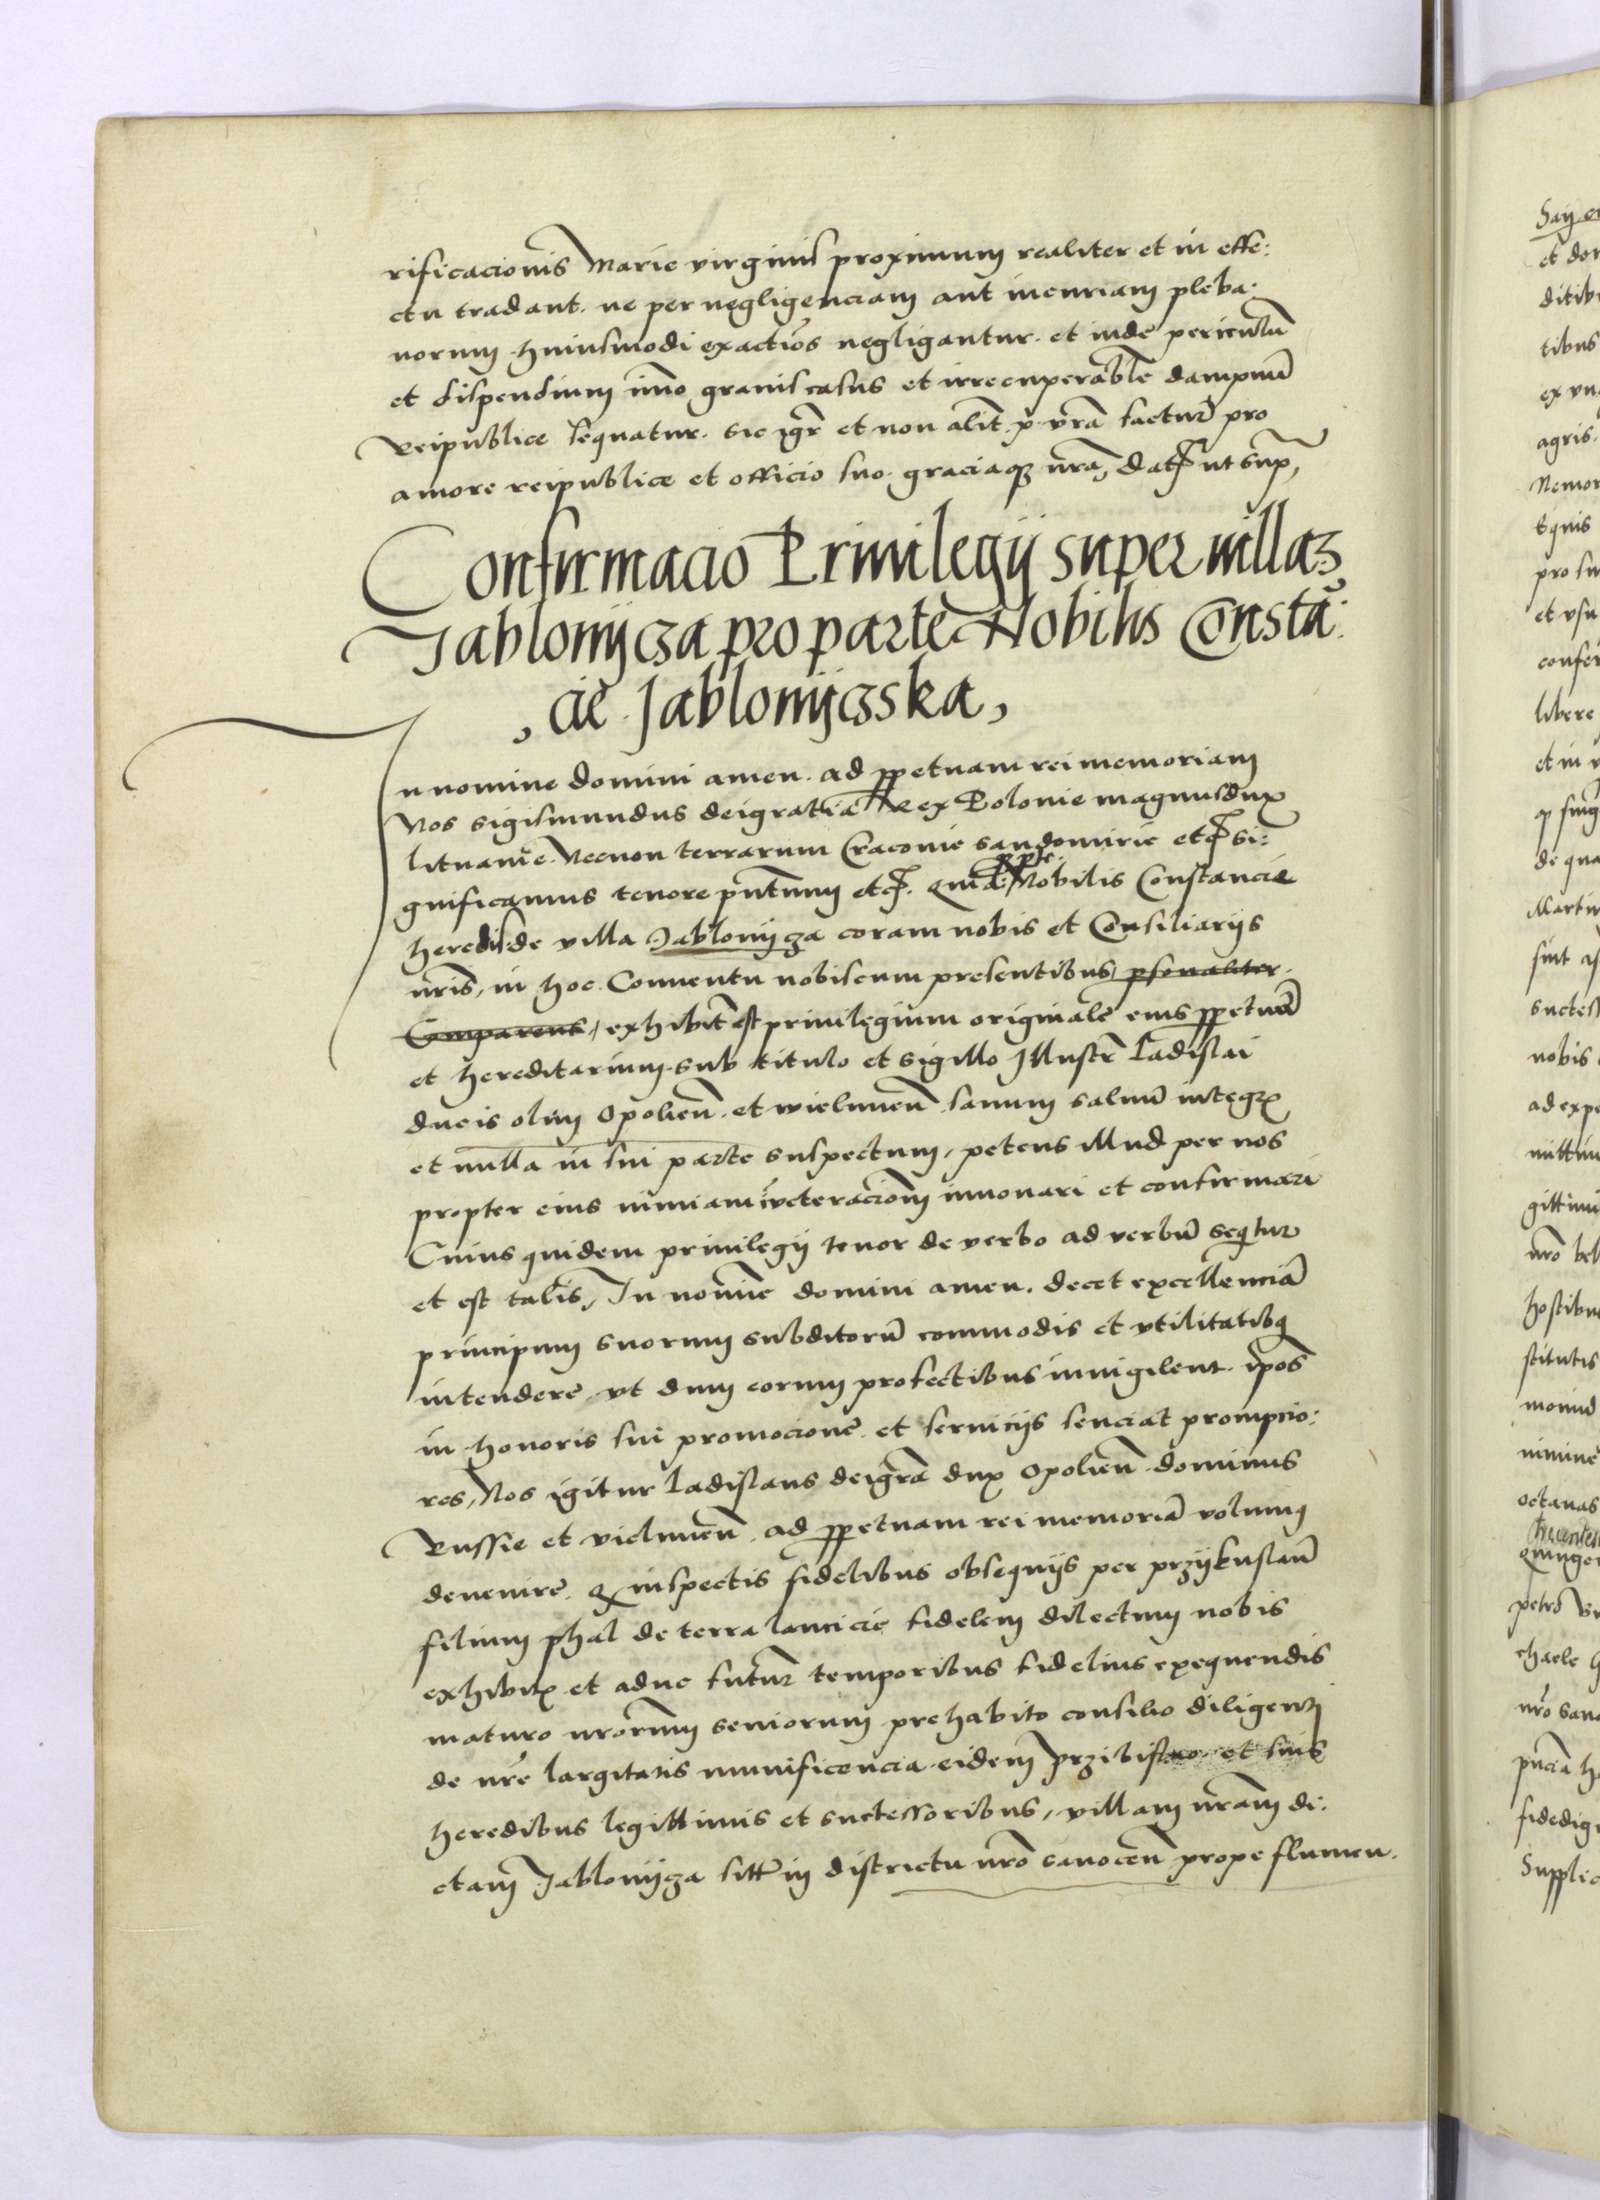 rificacionis Marie virginis proximum realiter et in effe:
ctu tradant. ne per negligenciam aut incuriam pleba:
norum huiusmodi exactiōs negligantur. et inde periculū
et dispendium īmo gravis casus et irrecuperabile dampnū
Reipublice sequatur. Sic igr̄ et non alit̄ p vrā facturi pro
amore reipublice et officio suo. graciaqȝ nrā, Datꝭ ut supꝛ,
Confirmacio Privilegij super villaȝ
Jablonijcȝa pro parte Nobilis Constā:
, cie Jablonijcȝska,
In nomine domini amen. ad ꝑpetuam rei memoriam
Nos Sigismundus dei gratia Rex Polonie magnus dux
lituanie. Necnon terrarum Cracovie Sandomirie etcꝭ Si:
gnificamus tenore pn̄tium etcꝭ. quia Nobilis Constancie
heredis de villa Jablonijcȝa coram nobis et Consiliarijs
nr̄is, in hoc Conventu nobiscum presentibus, ꝑsonaliter
Comparens, exhibit̄ est privilegium originale eius ꝑpetuū
et hereditarium. sub titulo et sigillo Illustr̄ Ladislai
ducis olim Opolien̄. et wielunen̄. sanum salvū integrꝝ
et nulla in sui parte suspectum, petens illud per nos
propter eius nimiam inveteracionē innovari et confirmari
Cuius quidem privilegij tenor de verbo ad verbū sequitur
et est talis, In nomine domini amen. decet excellenciā
principum suorum subditorū commodis et vtilitatibꝫ
intendere, vt dum eorum profectibus invigilent. ip̄os
in honoris sui promocione. et servicijs senciat prompcio:
res, Nos igitur Ladislaus dei grā dux Opolien̄ dominus
Russie et vielunen̄. ad ꝑpetuam rei memoriā volumus
devenire. ꝙ inspectis fidelibus obsequijs per przijbuslaū
filium phal de terra lancicie fidelem dilectum nobis
exhibitꝭ et adhuc futur̄ temporibus fidelius exequendis
maturo nr̄orum seniorum prehabito consilio diligenti
de nr̄e largitatis munificencia eidem Przibislao et suis
heredibus legittimis et successoribus, villam nr̄am di:
ctam Jablonijcȝa sitꝭ in districtu nrō Sanocen̄ prope flumen.